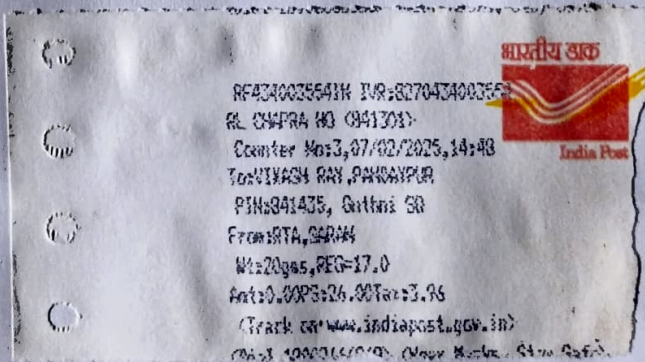 भारतीय डाक
India Post
RF434003554IN IVR:8270434003554
RL CHAPRA HO (841301)
Counter No:3,07/02/2025,14:48
To:VIKASH RAY,PANDAYPUR
PIN:841435, Guthni SO
From:RTA,SARAN
Wt:20gms,REG=17.0
Amt:0.00PS:26.00Tax:3.96
(Track on www.indiapost.gov.in)
(Wear Masks, Stay Safe)